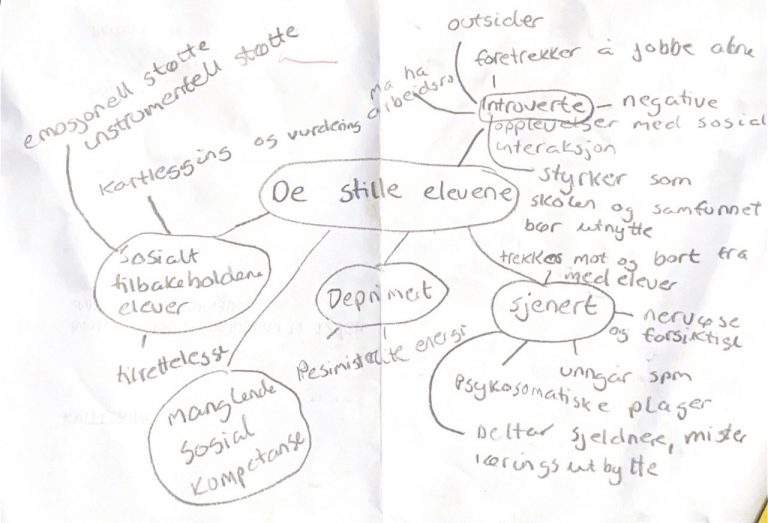 outsider
foretrekker å jobbe alene
må ha
arbeidsro
Introverte
negative
opplevelser med sosial
interaksjon
styrker som
skolen og samfunnet
bør utnytte
emosjonell støtte
instrumentell støtte
Kartlessing og vurdering
De stille elevene
sosialt
tilbakeholdene
elever
tilrettelesse
Manglende
sosial
kompetanse
Deprimert
Pesimistr
lite energi
trekkes mot og bort fra
med elever
sjenert
nervøse
og forsiktige
unngår spm
Psykosomatiske plager
Deltar sjeldnere, mister
lærings utbytte